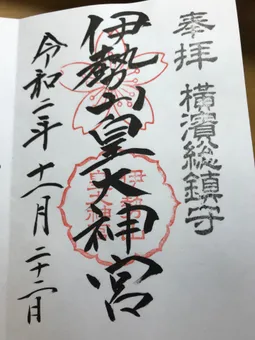 奉拝
横濱総鎮守
伊勢山皇大神宮
令和二年十一月二十二日